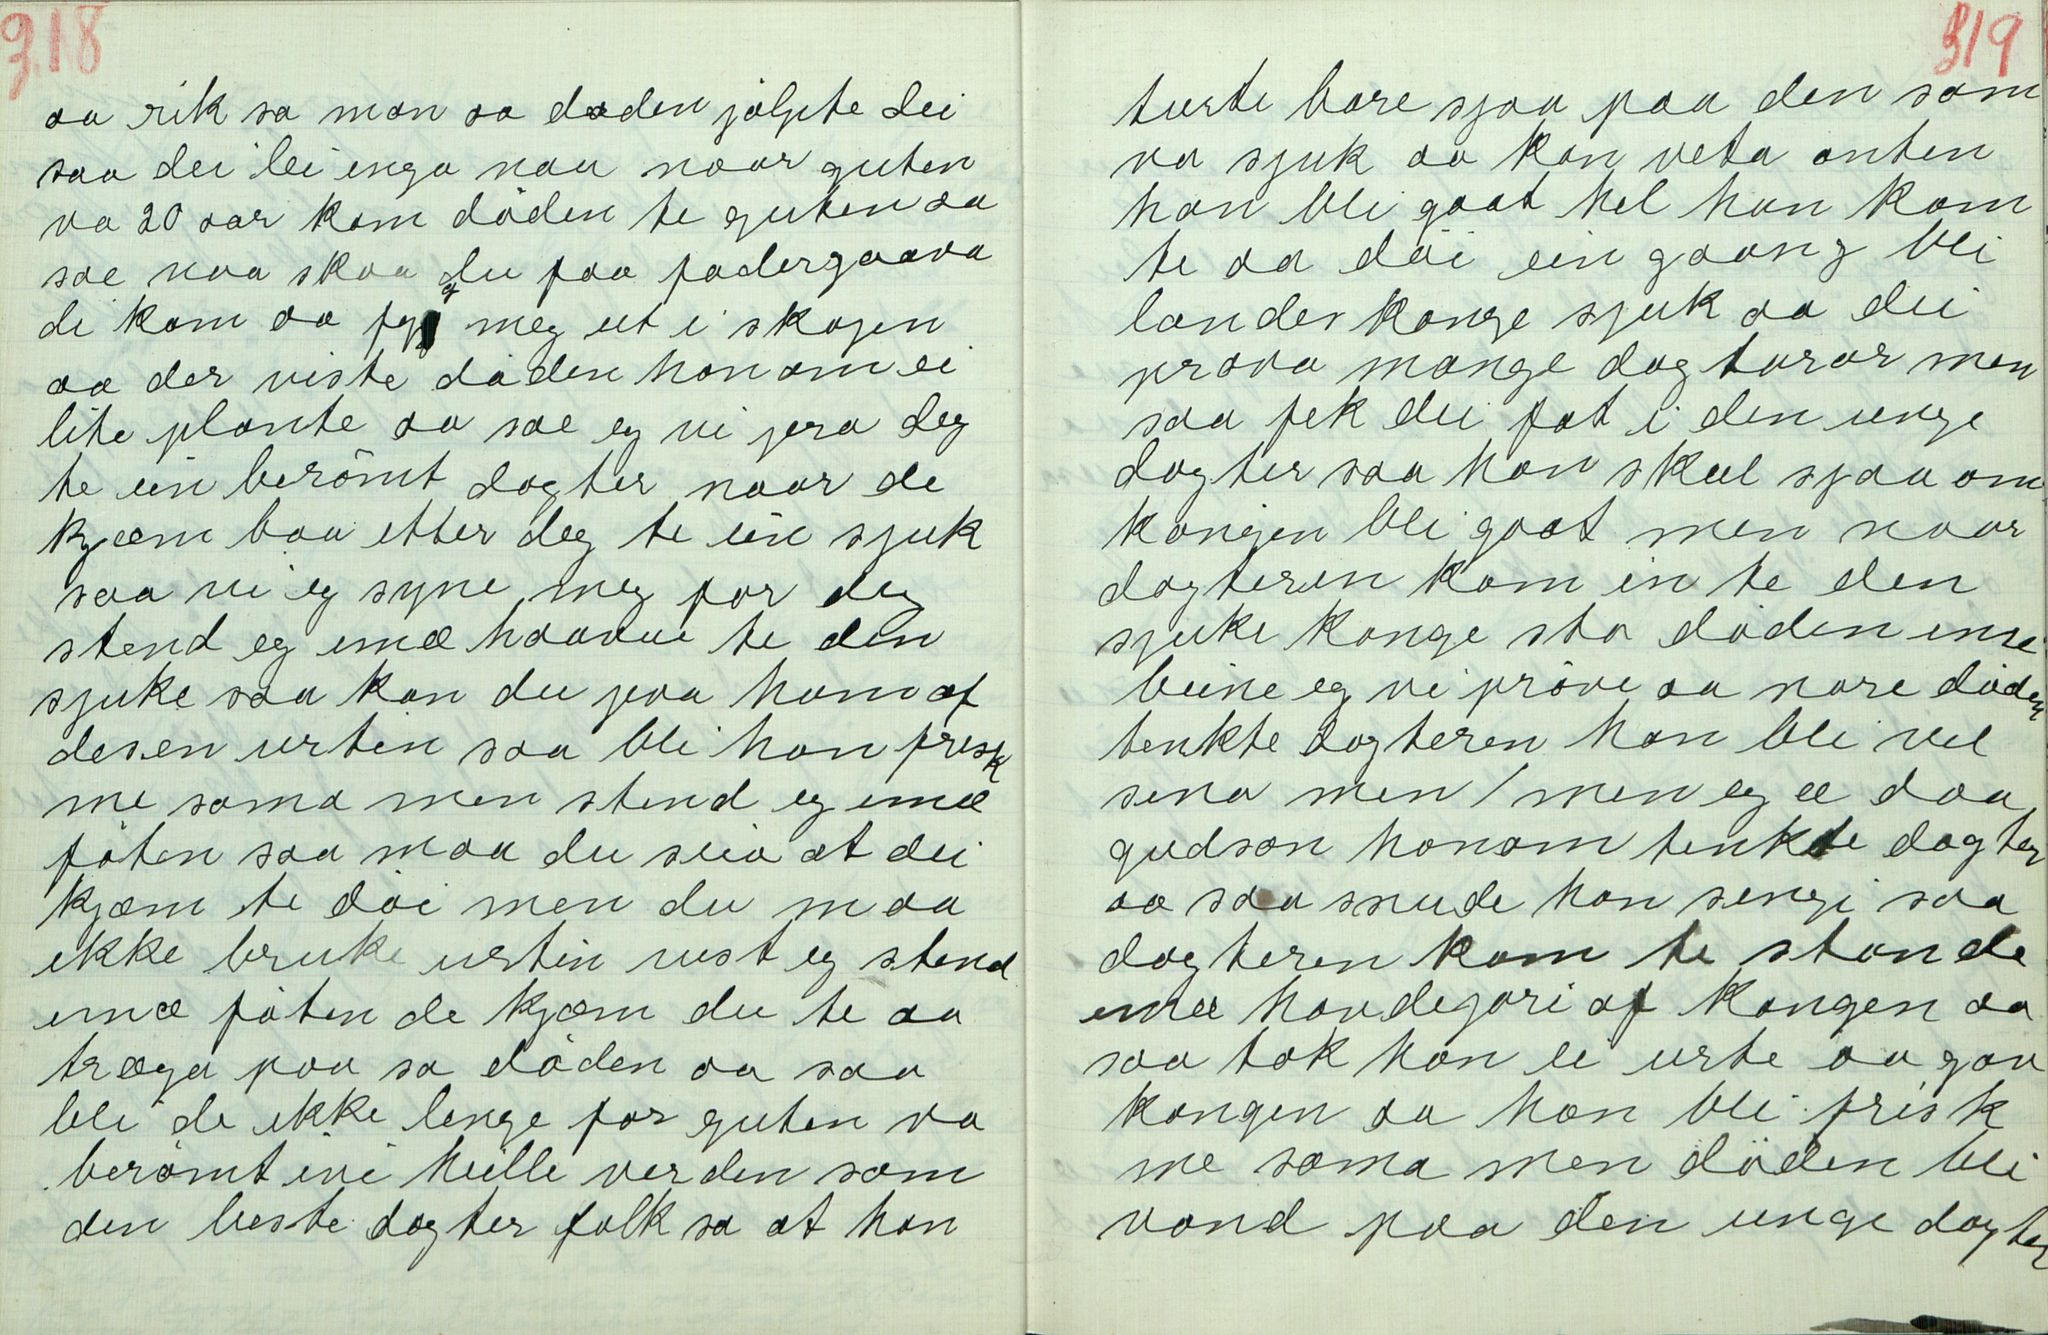 318
aa rik sa man so døden jølpte dei
saa dei lei inga naa naar guten
va 20 aar kom døden te guten aa
sae naa skaa du faa fadergaava
di kom aa fyg meg ut i skogen
aa der viste døden honom ei
lite plante aa sae eg vi jera deg
te ein berømt dagter naar de
kjæm baa etter deg te ein sjuk
saa vi eg syne meg for deg
stend eg imæ haavue te den
sjuke saa kan du jvaa ham af
desen urten saa bli han frisk
me sama men stend eg imæ
føten saa maa du seia at dei
kjæm te døi men du maa
ikke bruke urtin vist eg stend
imæ føten de kjæm du te aa
træga paa sa døden aa saa
bli de ikke lenge før guten va
berømt ivi heille verden som
den beste dagter folk sa at han
319
turte bare sjaa paa den som
va sjuk aa kan veta anten
han bli goat hel han kom
te aa døi ein gaang bli
landes konge sjuk aa dei
prøva mange dagtarar men
saa fek dei fat i den unge
dagter saa han skul sjaa om
kongen bli goat men naar
dagteren kom in te den
sjuke konge sto døden imæ
beine eg vi prøve aa nare døden
tenkte dagteren han bli vel
sena men / men eg æ daa
gudson honom tenkte dagter
aa saa snude han sengi saa
dagteren kom te stande
imæ hovdegari af kongen aa
saa tok han ei urte aa gav
kongen aa han bli frisk
me sama men døden bli
vond paa den unge dagter